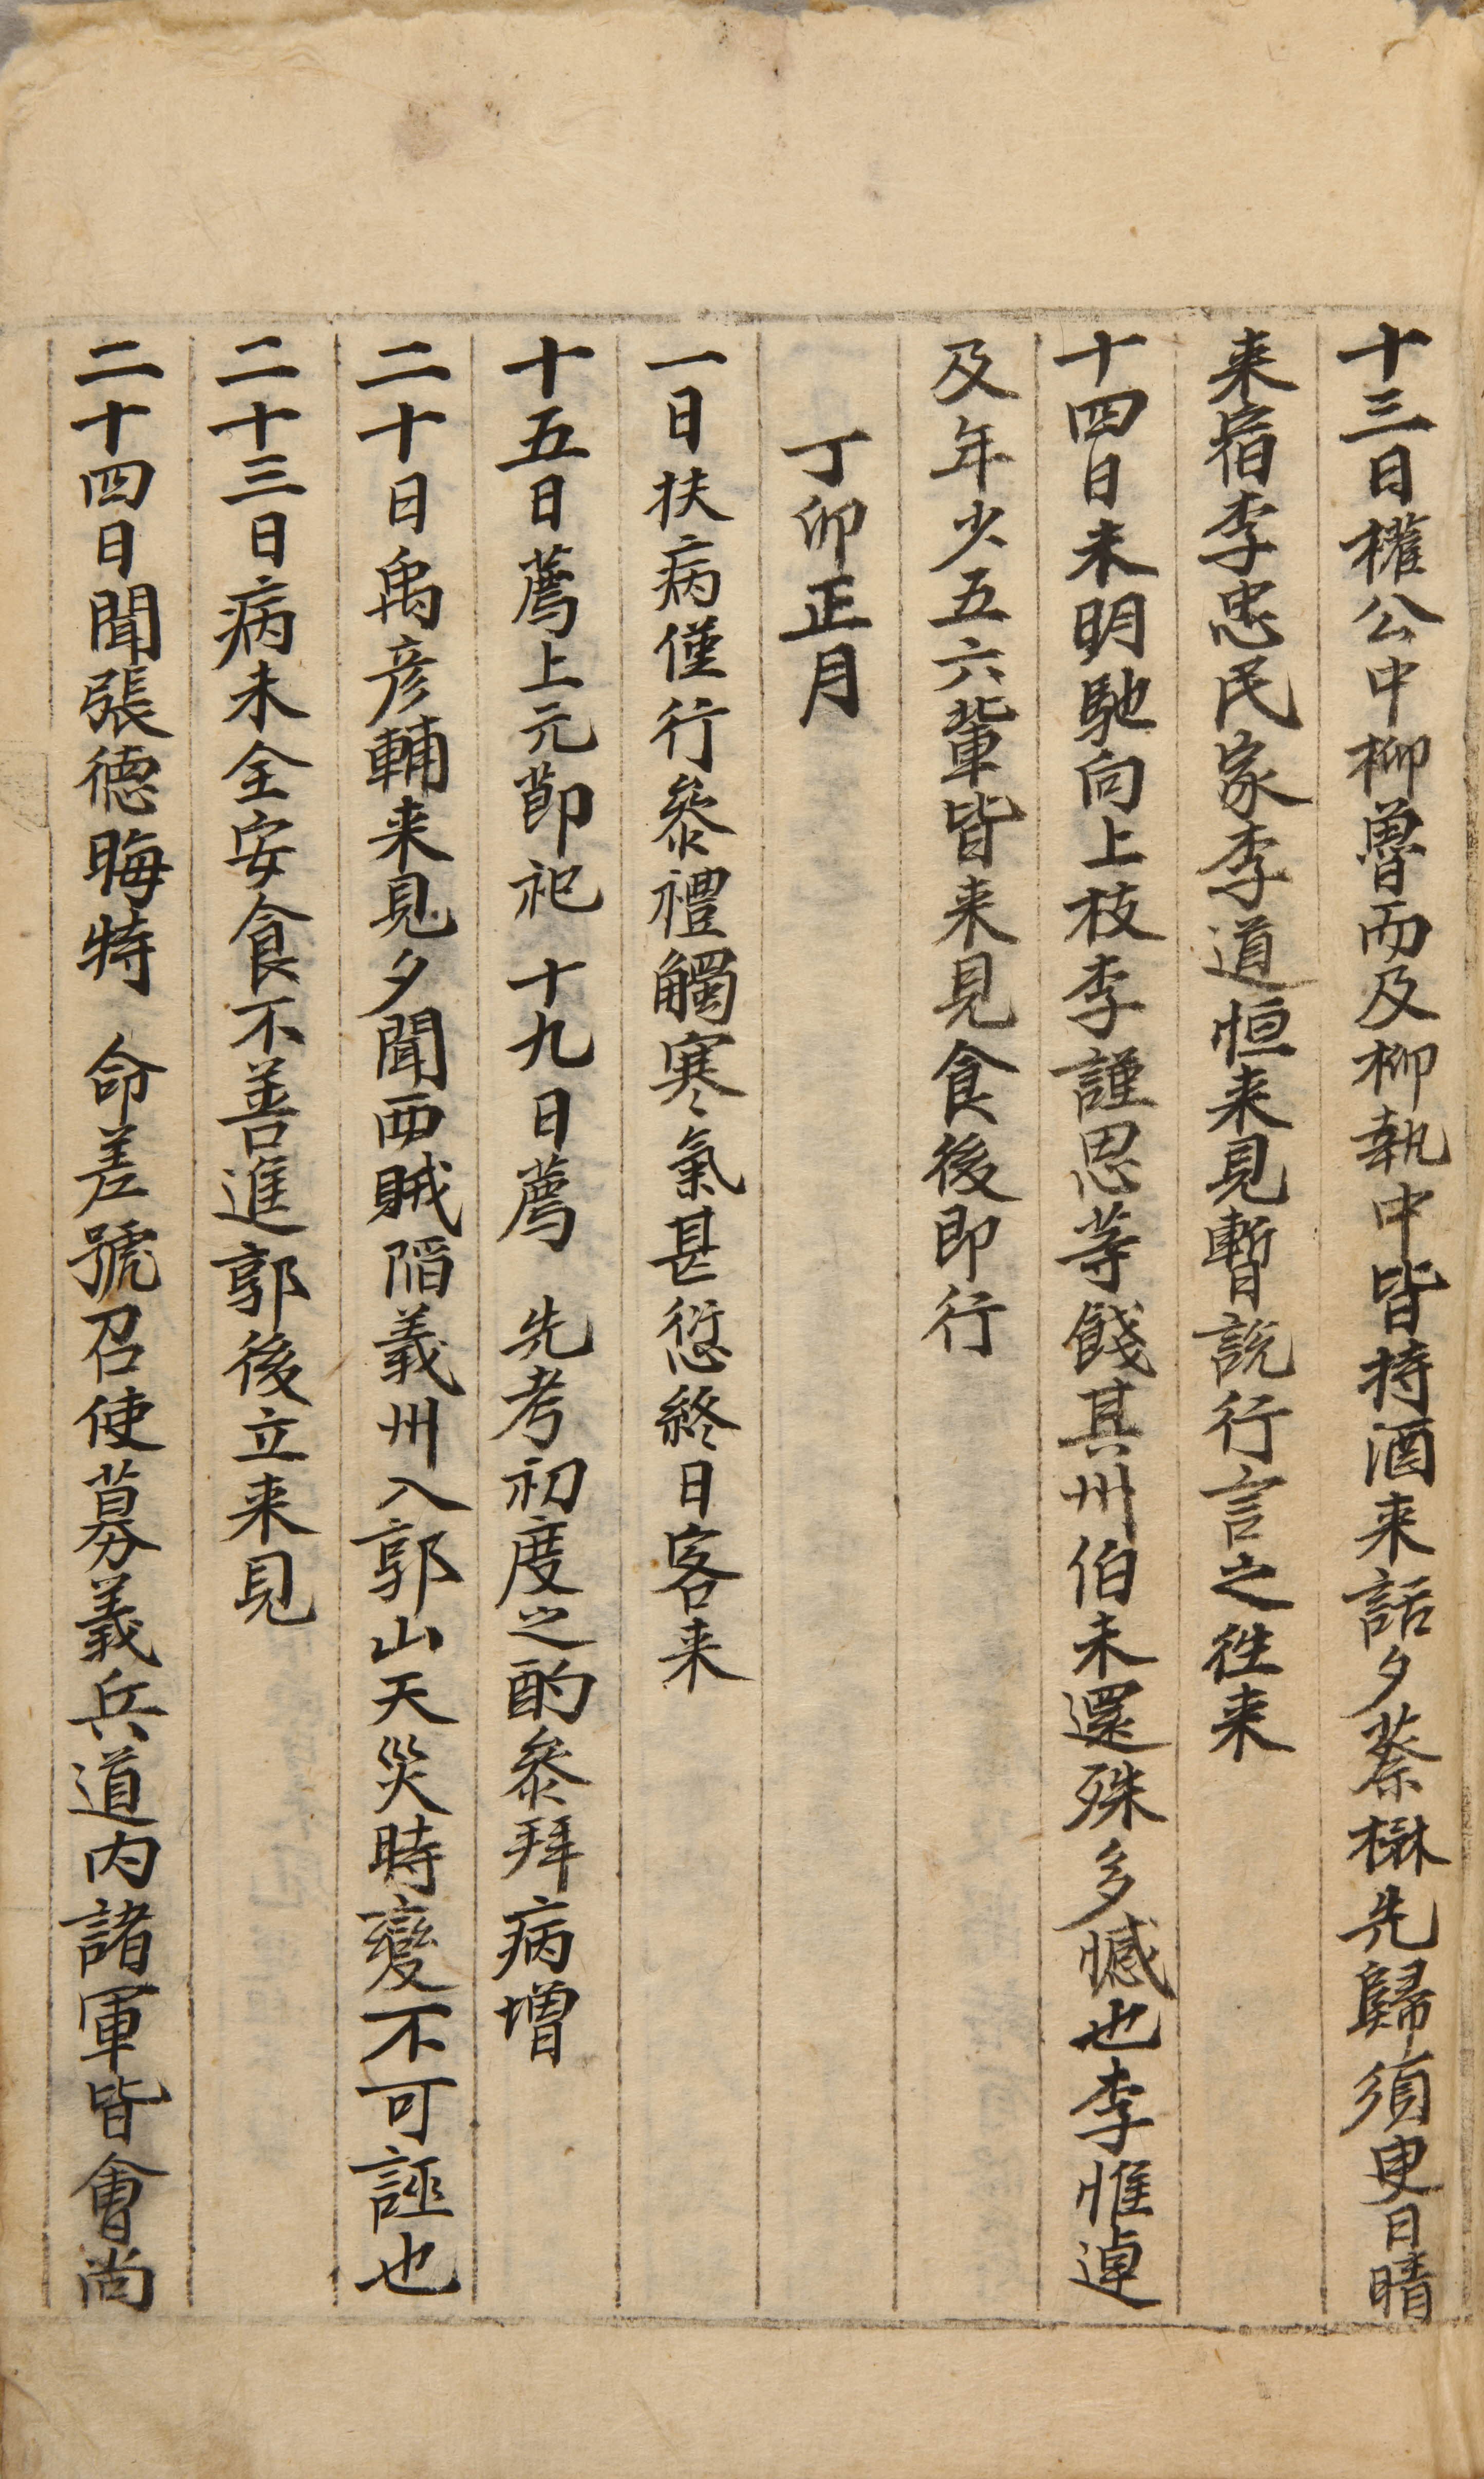 十三日權公中柳魯而及柳執中皆持酒来話夕蔡楙先歸須叟日晴
来宿李忠民家李道恒来見暫說行言之徃来
十四日未明馳向上枝李謹思等餞其州伯未還殊多憾也李惟達
及年少五六輩皆来見食後即行
丁卯正月
一日扶病僅行叅禮觸寒氣甚愆終日客来
十五日薦上元節祀 十九日薦 先考初度之酌叅拜病增
二十日禹彦輔来見夕聞西賊陷義州入郭山天災時變不可誣也
二十三日病未全安食不善進郭後立来見
二十四日聞張德晦特 命差號召使募義兵道内諸軍皆會尚